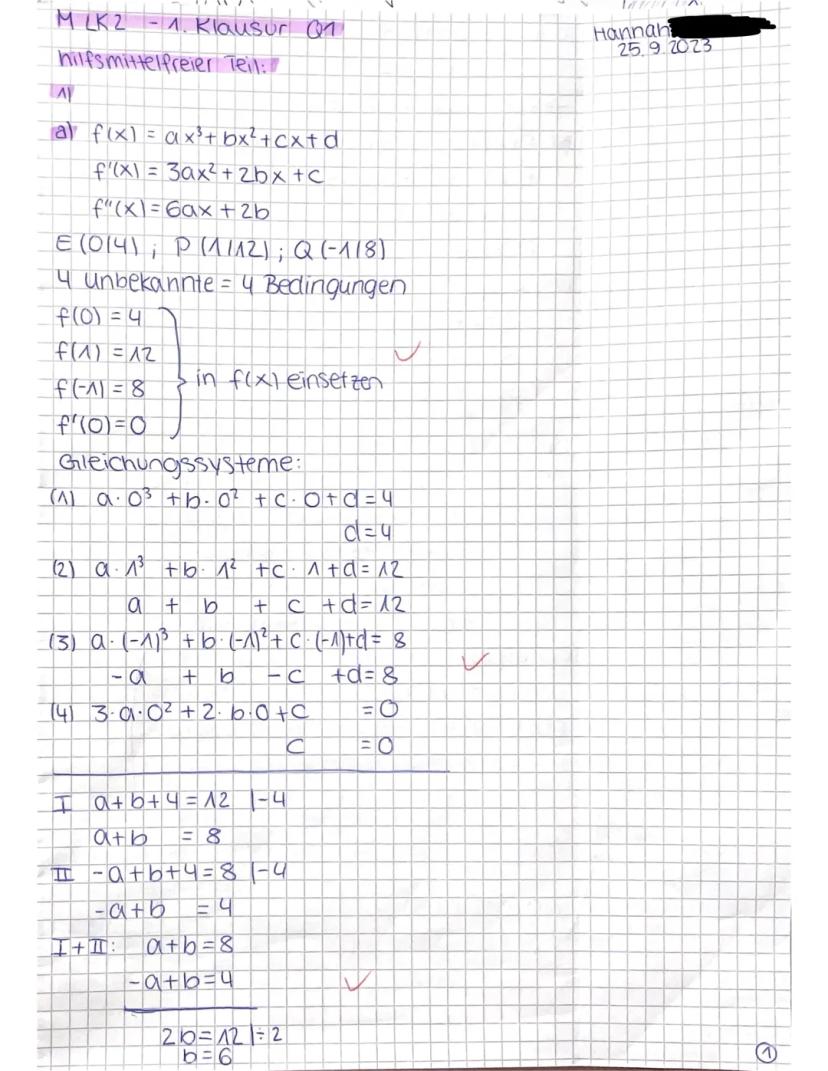 MLK2 - 1. Klausur Q1
Hannah
25.9.2023
hilfsmittelfreier Teil:
1)
a) f(x) = ax³ + bx² + cx + d
f'(x) = 3ax² + 2bx + c
f''(x) = 6ax + 2b
E(0|4) ; P(1|12) ; Q(-1|8)
4 Unbekannte = 4 Bedingungen
f(0) = 4
f(1) = 12
f(-1) = 8
f'(0) = 0
} in f(x) einsetzen
Gleichungssysteme:
(1) a·0³ + b·0² + c·0 + d = 4
d = 4
(2) a·1³ + b·1² + c·1 + d = 12
a + b + c + d = 12
(3) a·(-1)³ + b·(-1)² + c·(-1) + d = 8
-a + b - c + d = 8
(4) 3·a·0² + 2·b·0 + c = 0
c = 0
I a + b + 4 = 12 |-4
a + b = 8
II -a + b + 4 = 8 |-4
-a + b = 4
I + II: a + b = 8
-a + b = 4
2b = 12 |÷2
b = 6
1